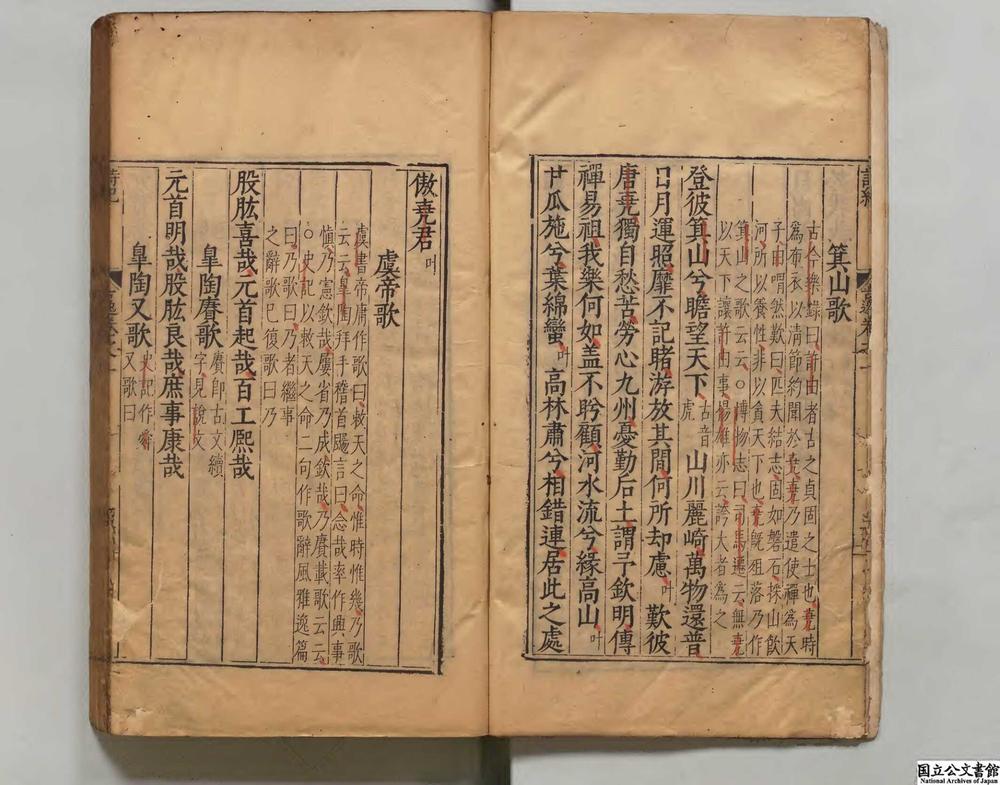 箕山歌
古今樂錄曰許由者古之貞固之士也堯時
為布衣以清節約聞於堯堯乃遣使禪為天
子由喟然歎曰匹夫結志固如磐石採山飲
河所以養性非以貪天下也堯既殂落乃作
箕山之歌云云○博物志曰司馬遷云無堯
以天下讓許由事楊雄亦云誇大者為之
登彼箕山兮瞻望天下古音虎山川麗崎萬物還普
日月運照靡不記睹游放其間何所却慮叶歎彼
唐堯獨自愁苦勞心九州憂勤后土謂予欽明傳
禪易祖我樂何如盖不盻顧河水流兮緣高山叶
甘瓜施兮葉綿蠻叶高林肅兮相錯連居此之處
傲堯君叶
虞帝歌
虞書帝庸作歌曰敕天之命惟時惟幾乃歌
云云皐陶拜手稽首颺言曰念哉率作興事
慎乃憲欽哉屢省乃成欽哉乃賡載歌云云
○史記以敕天之命二句作歌辭風雅逸篇
曰乃歌曰乃者繼事
之辭歌已復歌曰乃
股肱喜哉元首起哉百工熈哉
皐陶賡歌
賡即古文續
字見說文
元首明哉股肱良哉庶事康哉
皐陶又歌
史記作舜
又歌曰
国立公文書館
National Archives of Japan